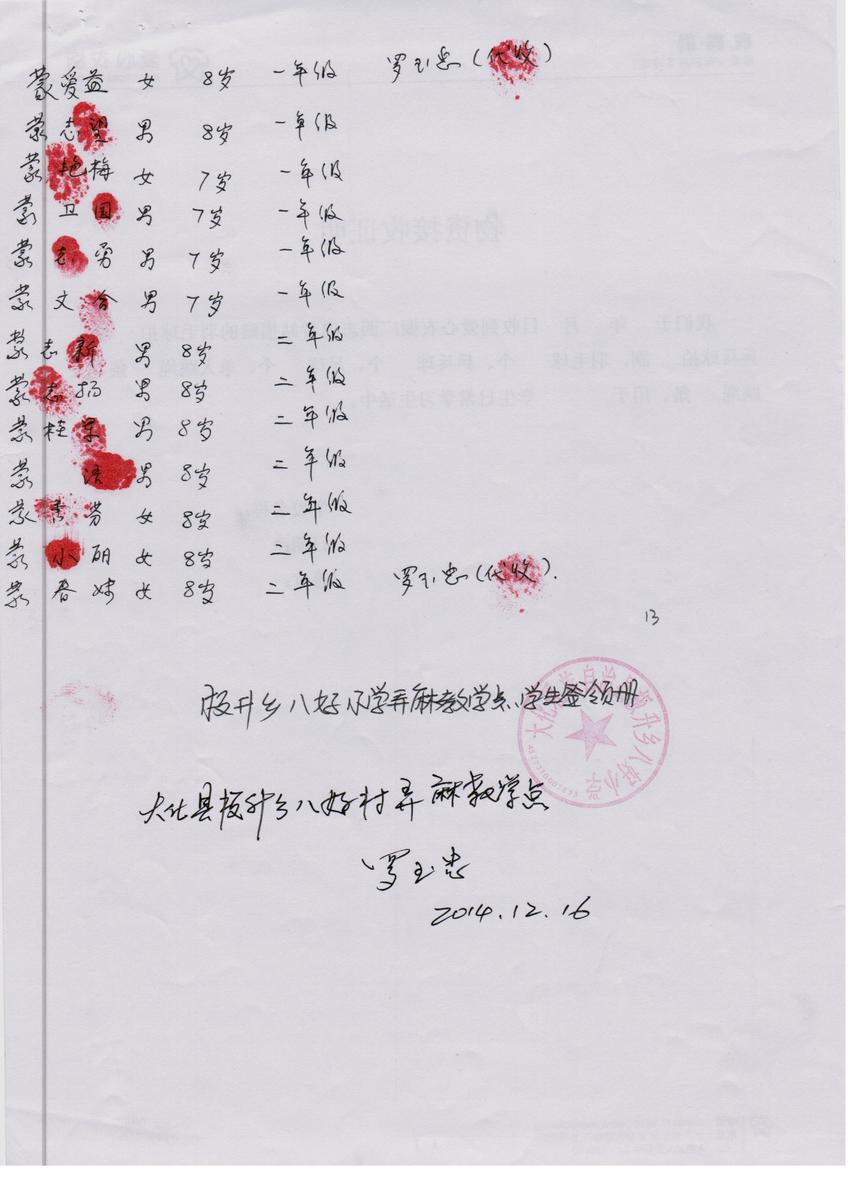 蒙爱益 女 8岁 一年级 罗玉忠(代收)
蒙志望 男 8岁 一年级
蒙艳梅 女 7岁 一年级
蒙卫国 男 7岁 一年级
蒙志勇 男 7岁 一年级
蒙文合 男 7岁 一年级
蒙志新 男 8岁 二年级
蒙志扬 男 8岁 二年级
蒙桂 男 8岁 二年级
蒙 洁 男 8岁 二年级
蒙秀芳 女 8岁 二年级
蒙小丽 女 8岁 二年级
蒙春妹 女 8岁 二年级 罗玉忠(代收).
13
板升乡八好小学弄麻教学点学生签领册
大化县板升乡八好村弄麻教学点
罗玉忠
2014.12.16